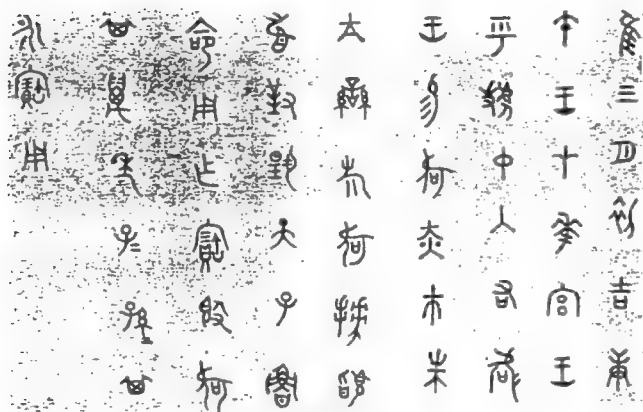 隹三月初吉庚
午王才華宮王
乎虢中入右何
王易何赤市朱
亢䜌旂何拜𩒨
首對揚天子魯
命用乍寶𣪘何
其萬年子=孫=其
永寶用